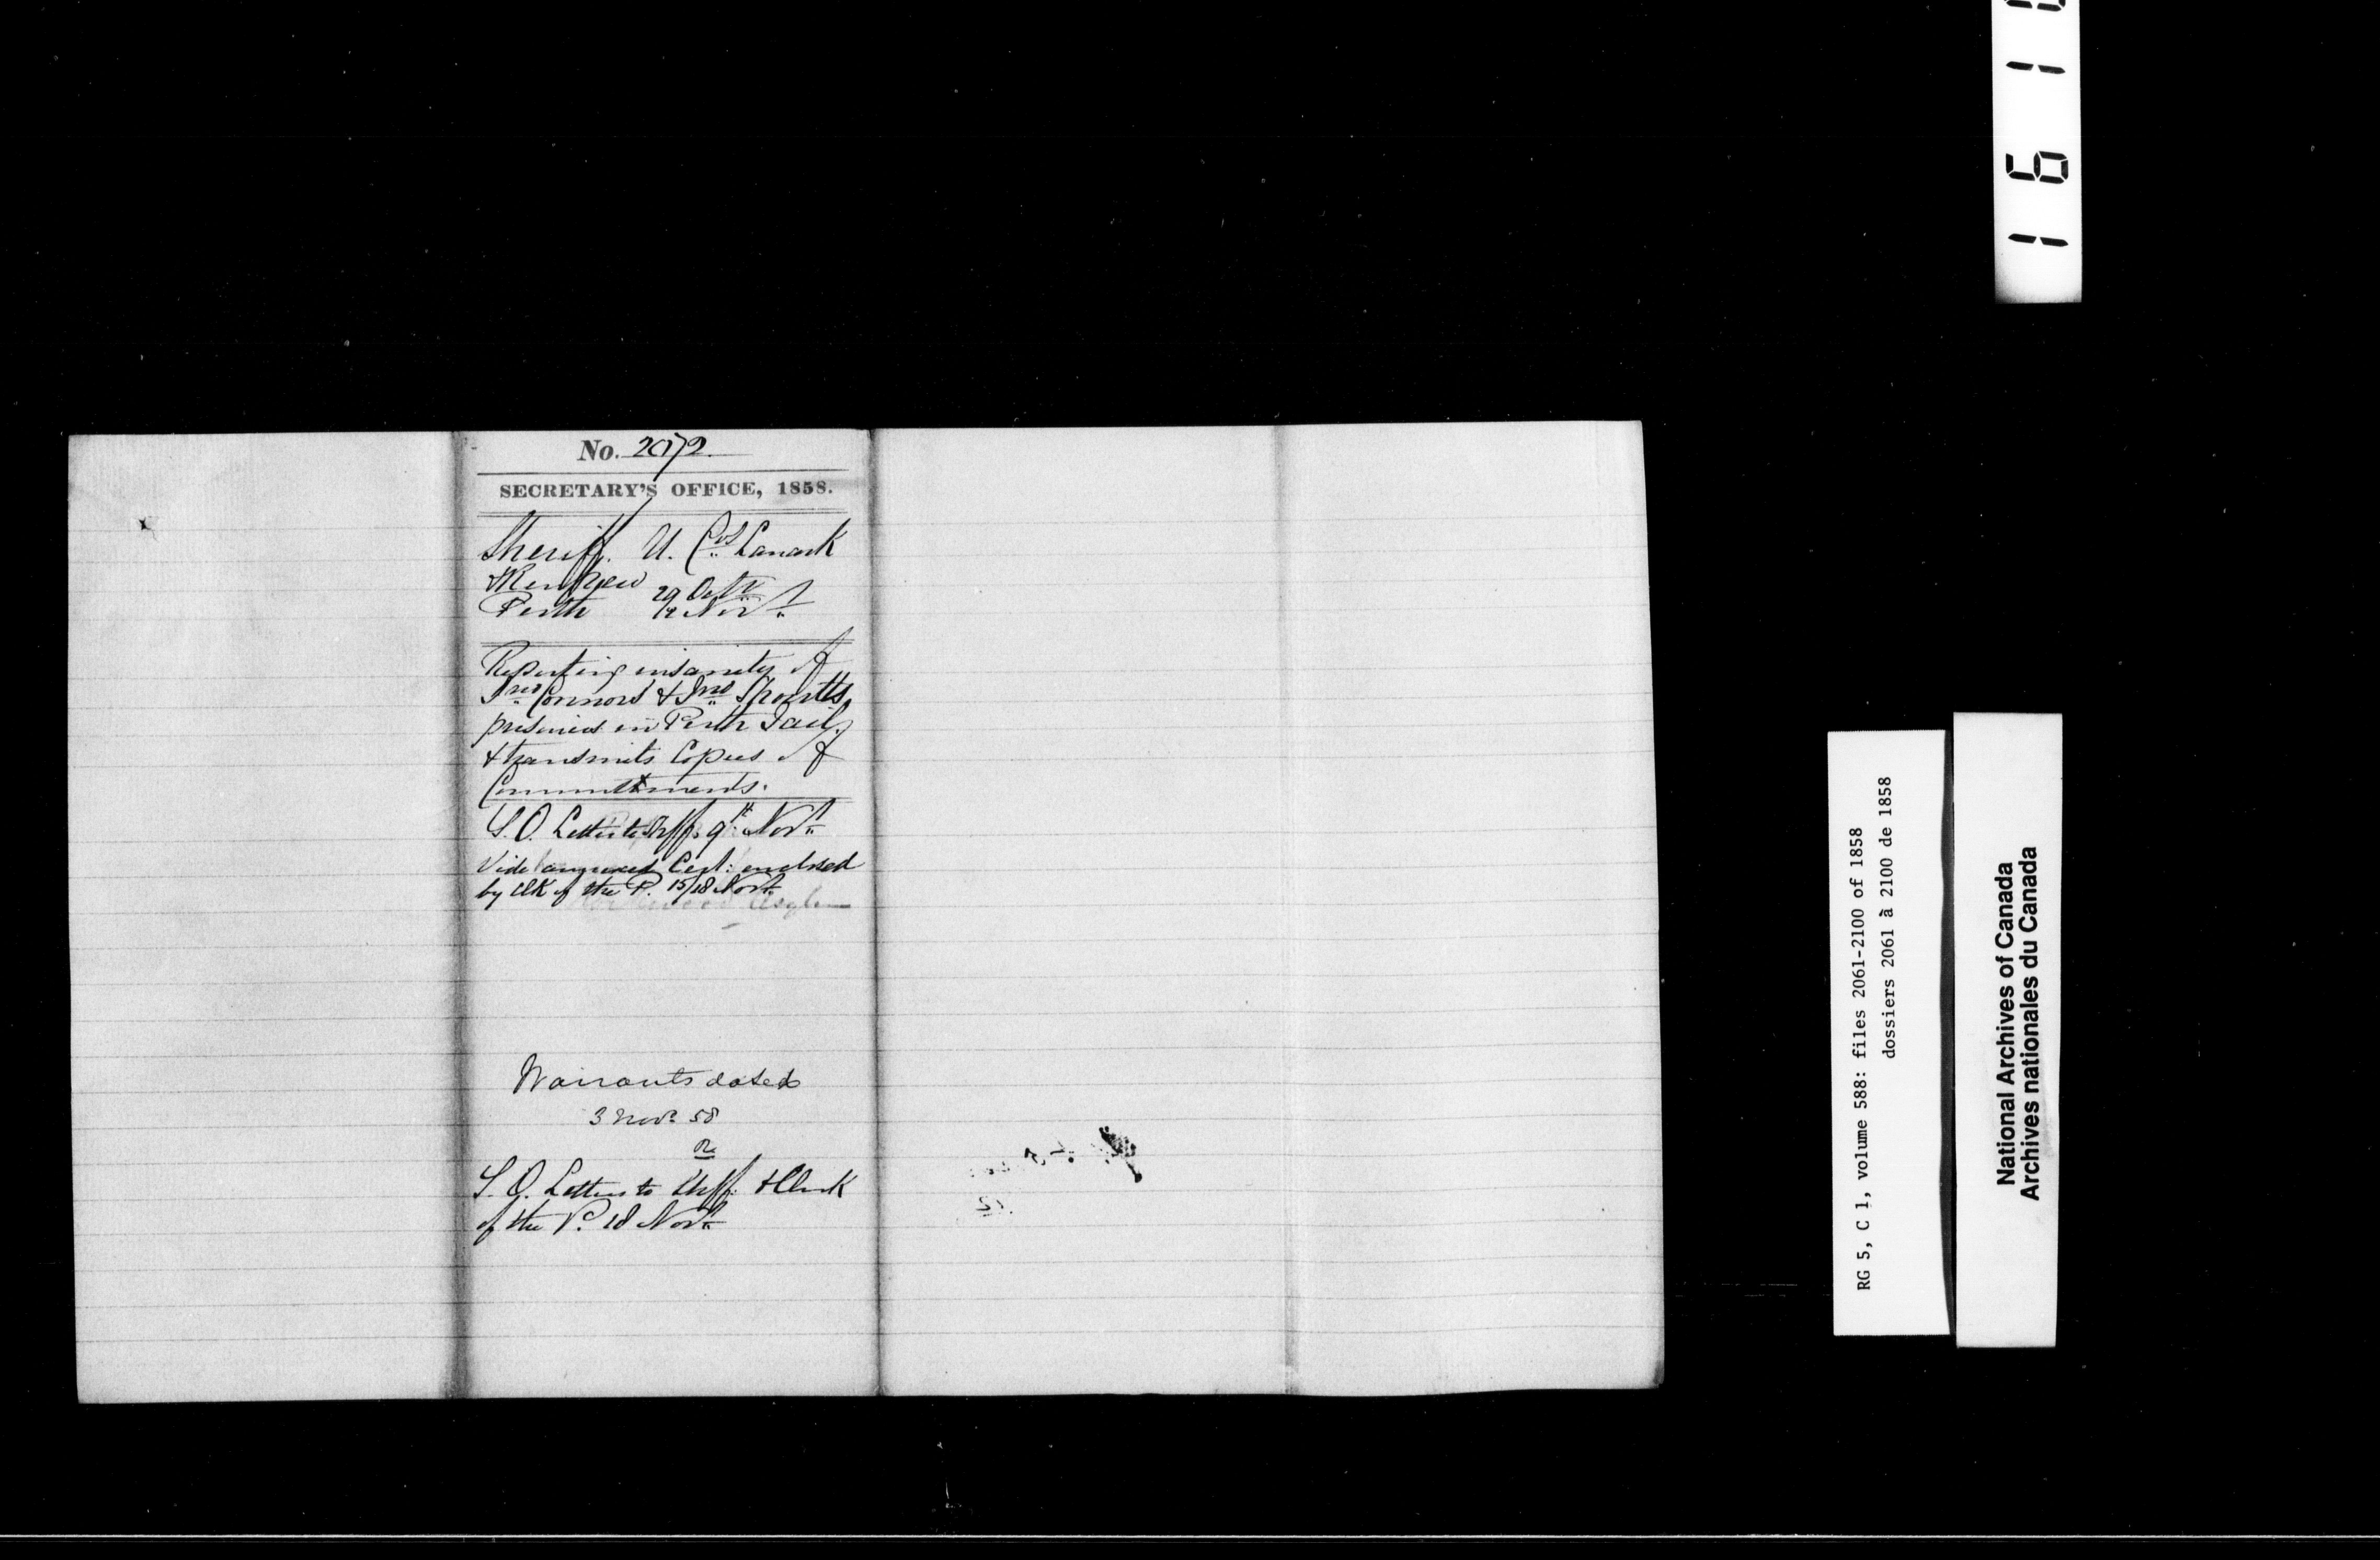 No. 2072.
SECRETARY'S OFFICE, 1858.
Sheriff. U. Cos Lanark
& Renfrew
Perth 29 Octr
/2 Novr
Reporting insanity of
Jno Connors & Jno
prisoners in Perth Jail,
& transmits Copies of
Committments.
S.O. Letter to Shff. 9th Novr
Vide annexed Cert: enclosed
by Clk of the P. 15/18 Novr
Asylum
Warrants dated
3 Novr 58
S.O. Letters to Shff. & Clerk
of the P. 18 Novr
1 6 1
RG 5, C 1, volume 588: files 2061-2100 of 1858
dossiers 2061 à 2100 de 1858
National Archives of Canada
Archives nationales du Canada